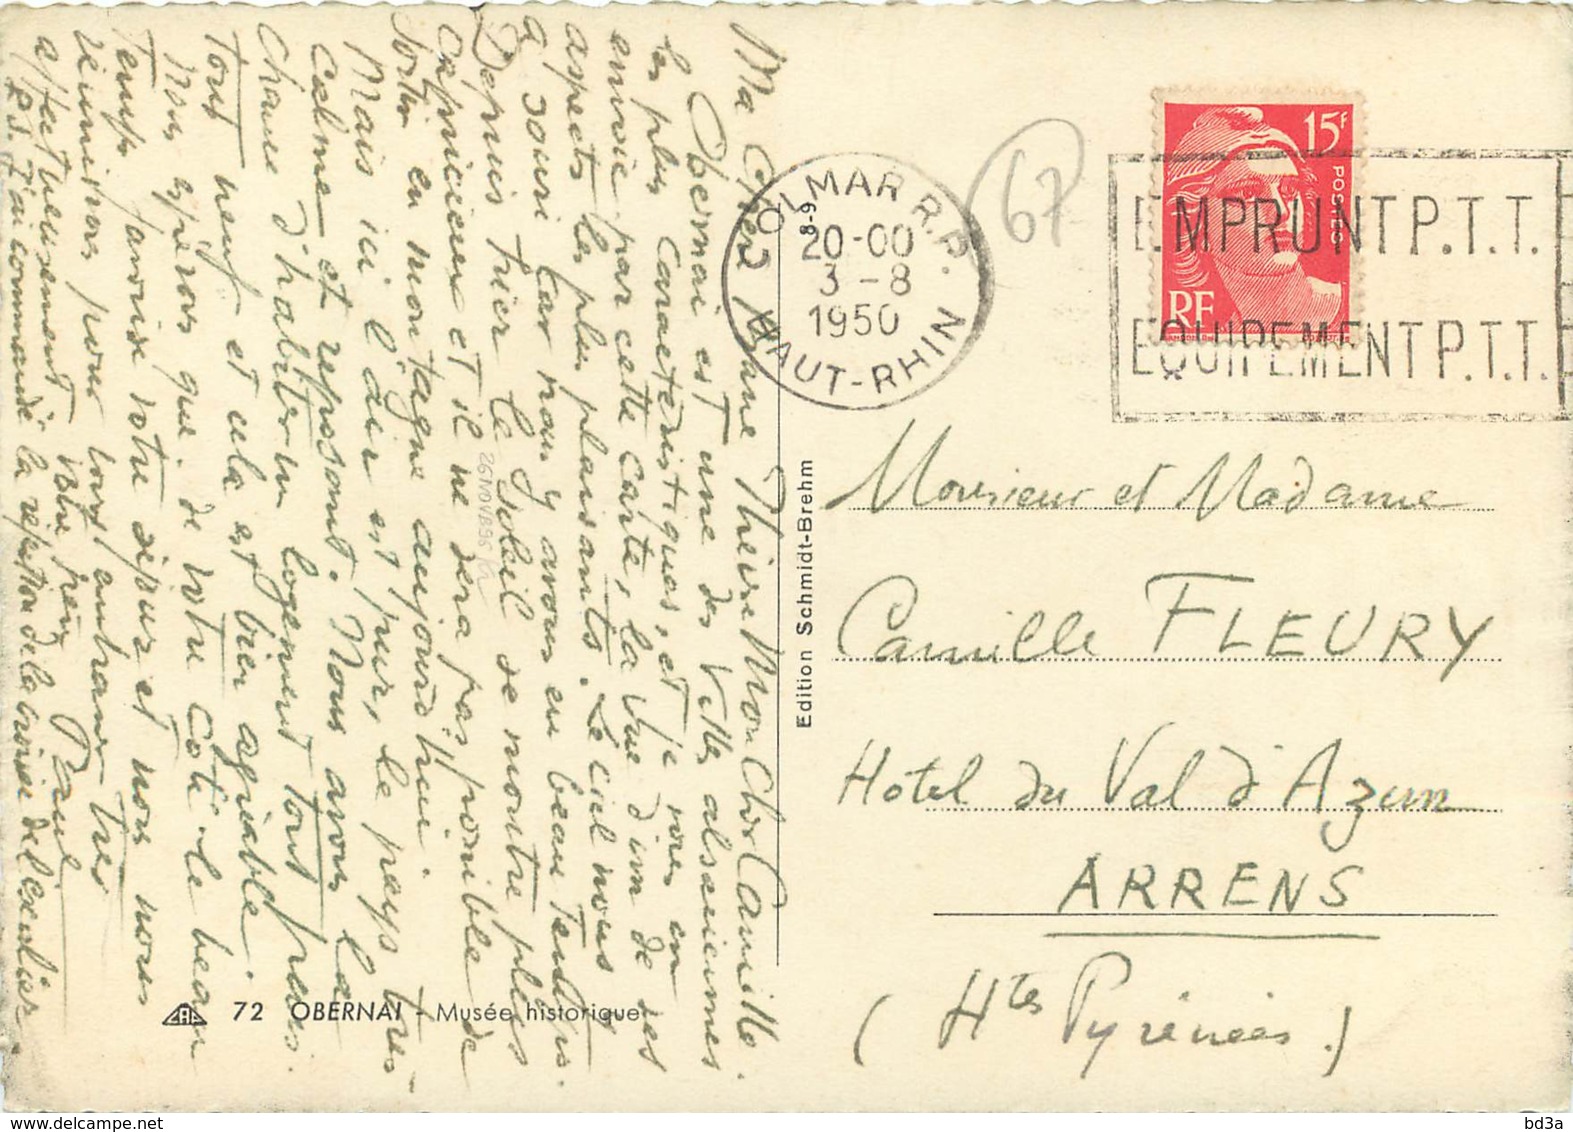 Ma Chère Marie Thérèse Mon Cher Camille.
Obernai est une des Villes alsaciennes
les plus caractéristiques, et je vous en
envoie par cette carte, la vue d'un de ses
aspects les plus plaisants. Le ciel nous
a souri car nous y avons eu beau temps.
Depuis hier le Soleil se montre plus
capricieux et il ne sera pas possible de
sortir en montagne aujourd'hui.
Mais ici l'air est pur, le pays très
calme et reposant. Nous avons la
chance d'habiter un logement tout
tout neuf et cela est bien agréable.
Nous espérons que de votre côté le beau
Temps favorise votre séjour et nous nous
réunirons pour vous
affectueusement Votre Paul
P.S. J'ai commandé la réfection de la de l'escalier
72 OBERNAI - Musée historique
26 NOV 896
Edition Schmidt-Brehm
COLMAR R.P.
8-9
20-00
3-8
1950
HAUT-RHIN
67
15F
POSTES
RF
EMPRUNT P.T.T.
EQUIPEMENT P.T.T.
Monsieur et Madame
Camille FLEURY
Hotel du Val d'Azun
ARRENS
(Htes Pyrénées.)
© delcampe.net
bd3a